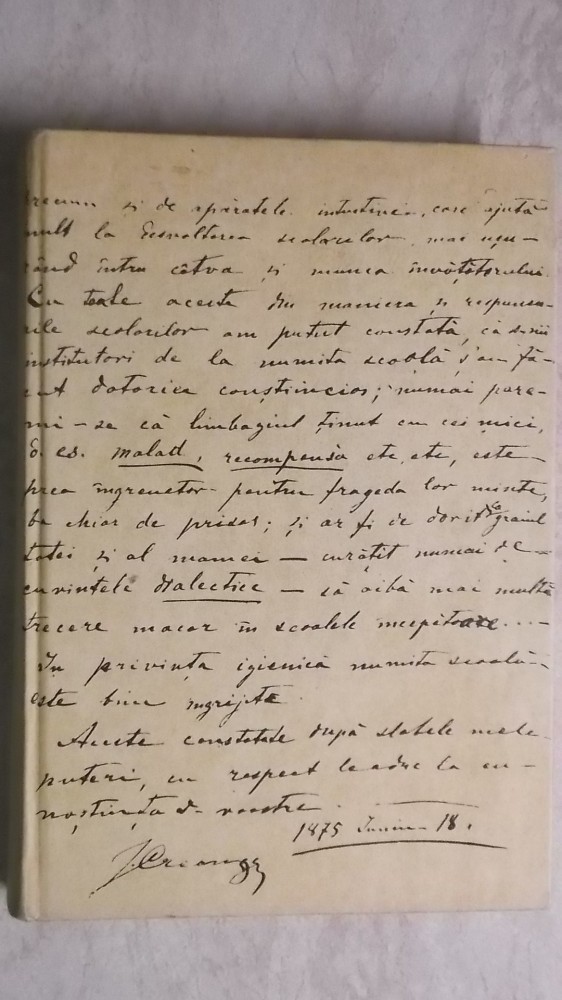 și de aparatele intuitive, care ajută
mult la desvoltarea școlarilor, mai ușu-
rând întru câtva și munca învățătorului.
Cu toate aceste din maniera și respunsu-
rile școlarilor am putut constata, că d-nii
institutori de la numita școală ș'au fă-
cut datoria conștiincios; numai pare-
mi-se că limbagiul ținut cu cei mici,
d. es. malad, recompensă etc, etc, este-
prea îngreuetor pentru frageda lor minte,
ba chiar de prisos; și ar fi de dorit ca graiul
tatei și al mamei — curățit numai de —
cuvintele dialectice — să aibă mai multă
trecere macar în școalele începătoare...-
In privința igienică numita școală-
este bine îngrijită.
Aceste constatate după slabele mele-
puteri, cu respect le aduc la cu-
noștiința d- voastre.
1875 Iuniu 18.
I Creangă